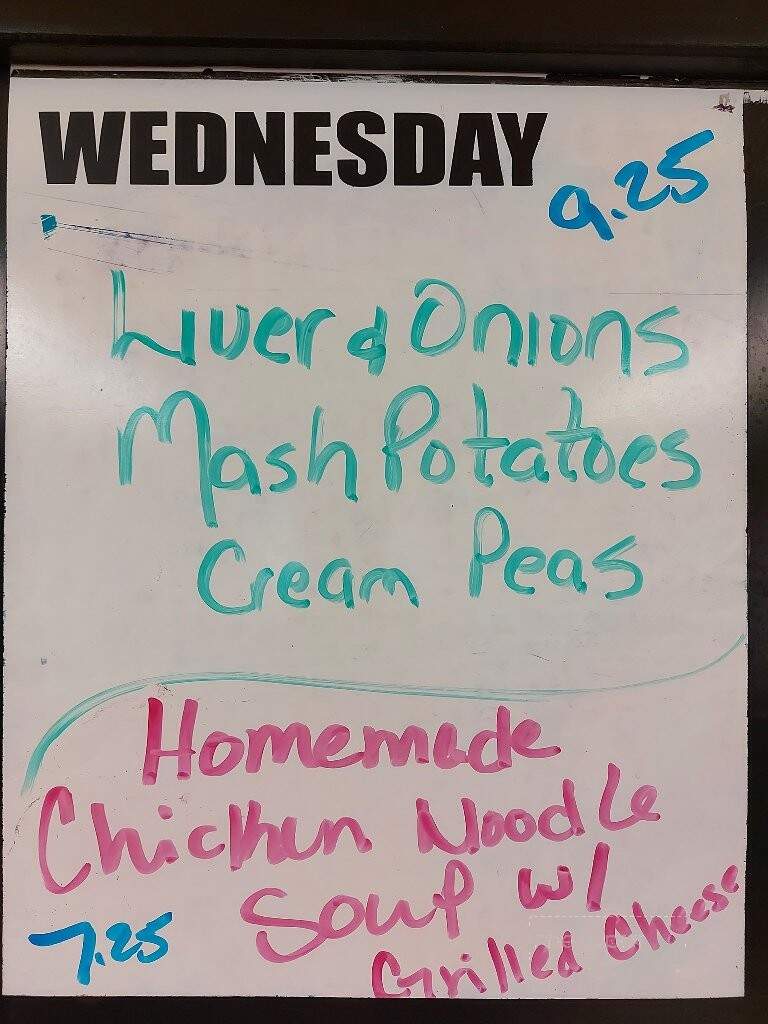 WEDNESDAY
9.25
Liver & Onions
Mash Potatoes
Cream Peas
Homemade
Chicken Noodle
Soup w/
Grilled Cheese
7.25